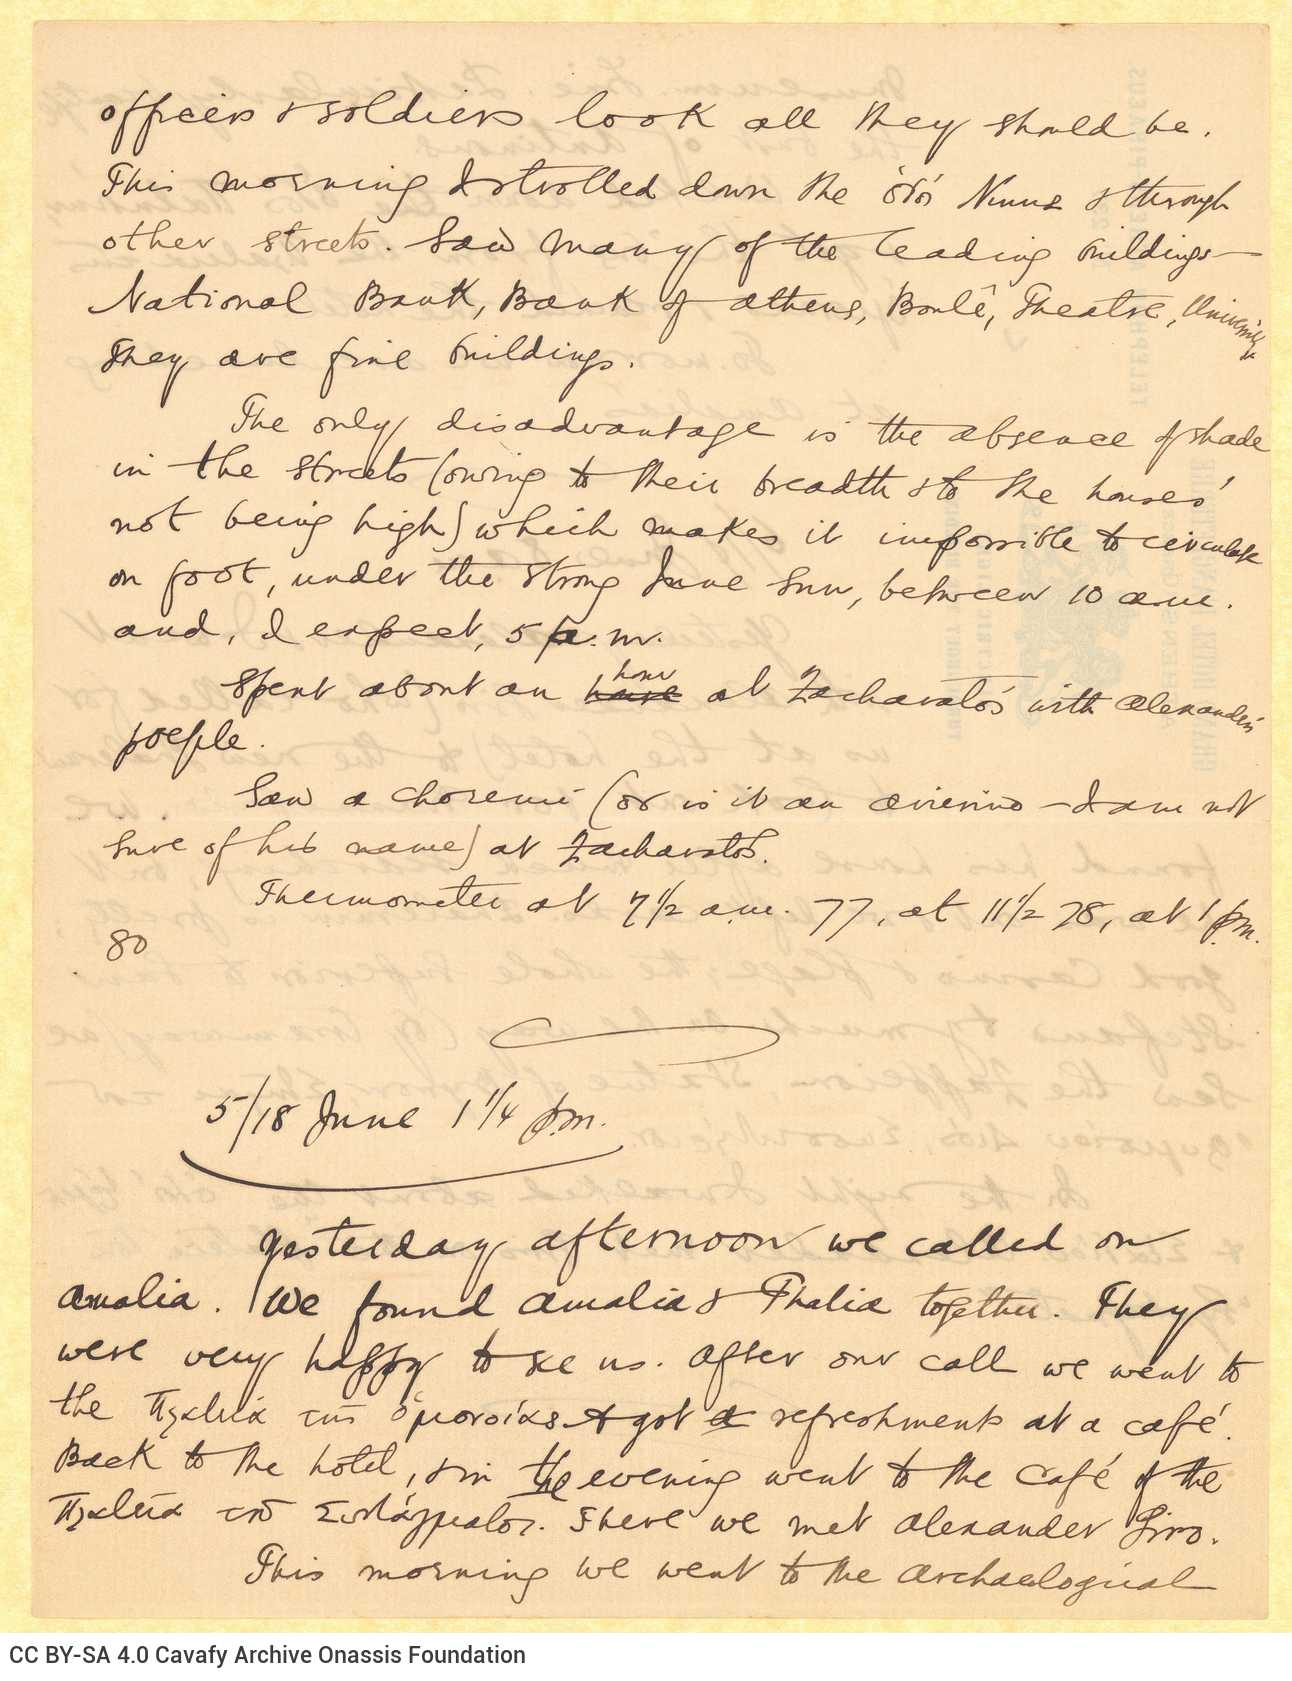 officers & soldiers look all they should be.
This morning I strolled down the ὁδός Νίκης & through
other streets. Saw many of the leading buildings—
National Bank, Bank of Athens, Boulê, Theatre, University
They are fine buildings.
The only disadvantage is the absence of shade
in the streets (owing to their breadth & to the houses'
not being high) which makes it impossible to circulate
on foot, under the strong June sun, between 10 a.m.
and, I expect, 5 p.m.
Spent about an hour at Zacharatos' with Alexander's
people.
Saw a Choremi (or is it an — I am not
sure of his name) at Zacharatos'.
Thermometer at 7 1/2 a.m. 77, at 11 1/2 78, at 1 p.m.
80
5/18 June 1 1/4 p.m.
Yesterday afternoon we called on
Amalia. We found Amalia & Thalia together. They
were very happy to see us. After our call we went to
the πλατεῖα τῆς Ὁμονοίας & got refreshments at a café.
Back to the hotel, & in the evening went to the café of the
πλατεῖα τοῦ Συντάγματος. There we met Alexander
This morning we went to the Archaeological
CC BY-SA 4.0 Cavafy Archive Onassis Foundation